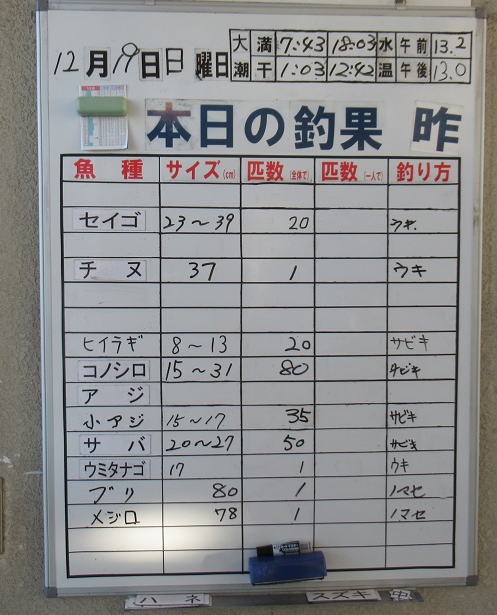 大 満 7:43 18:03 水 午前 13.2
12月19日日曜日
潮 干 1:03 12:42 温 午後 13.0
本日の釣果 昨
魚種 サイズ(cm) 匹数(全体で) 匹数(一人で) 釣り方
セイゴ 23~39 20 ウキ
チヌ 37 1 ウキ
ヒイラギ 8~13 20 サビキ
コノシロ 15~31 80 サビキ
アジ
小アジ 15~17 35 サビキ
サバ 20~27 50 サビキ
ウミタナゴ 17 1 ウキ
ブリ 80 1 ノマセ
メジロ 78 1 ノマセ
ハネ スズキ